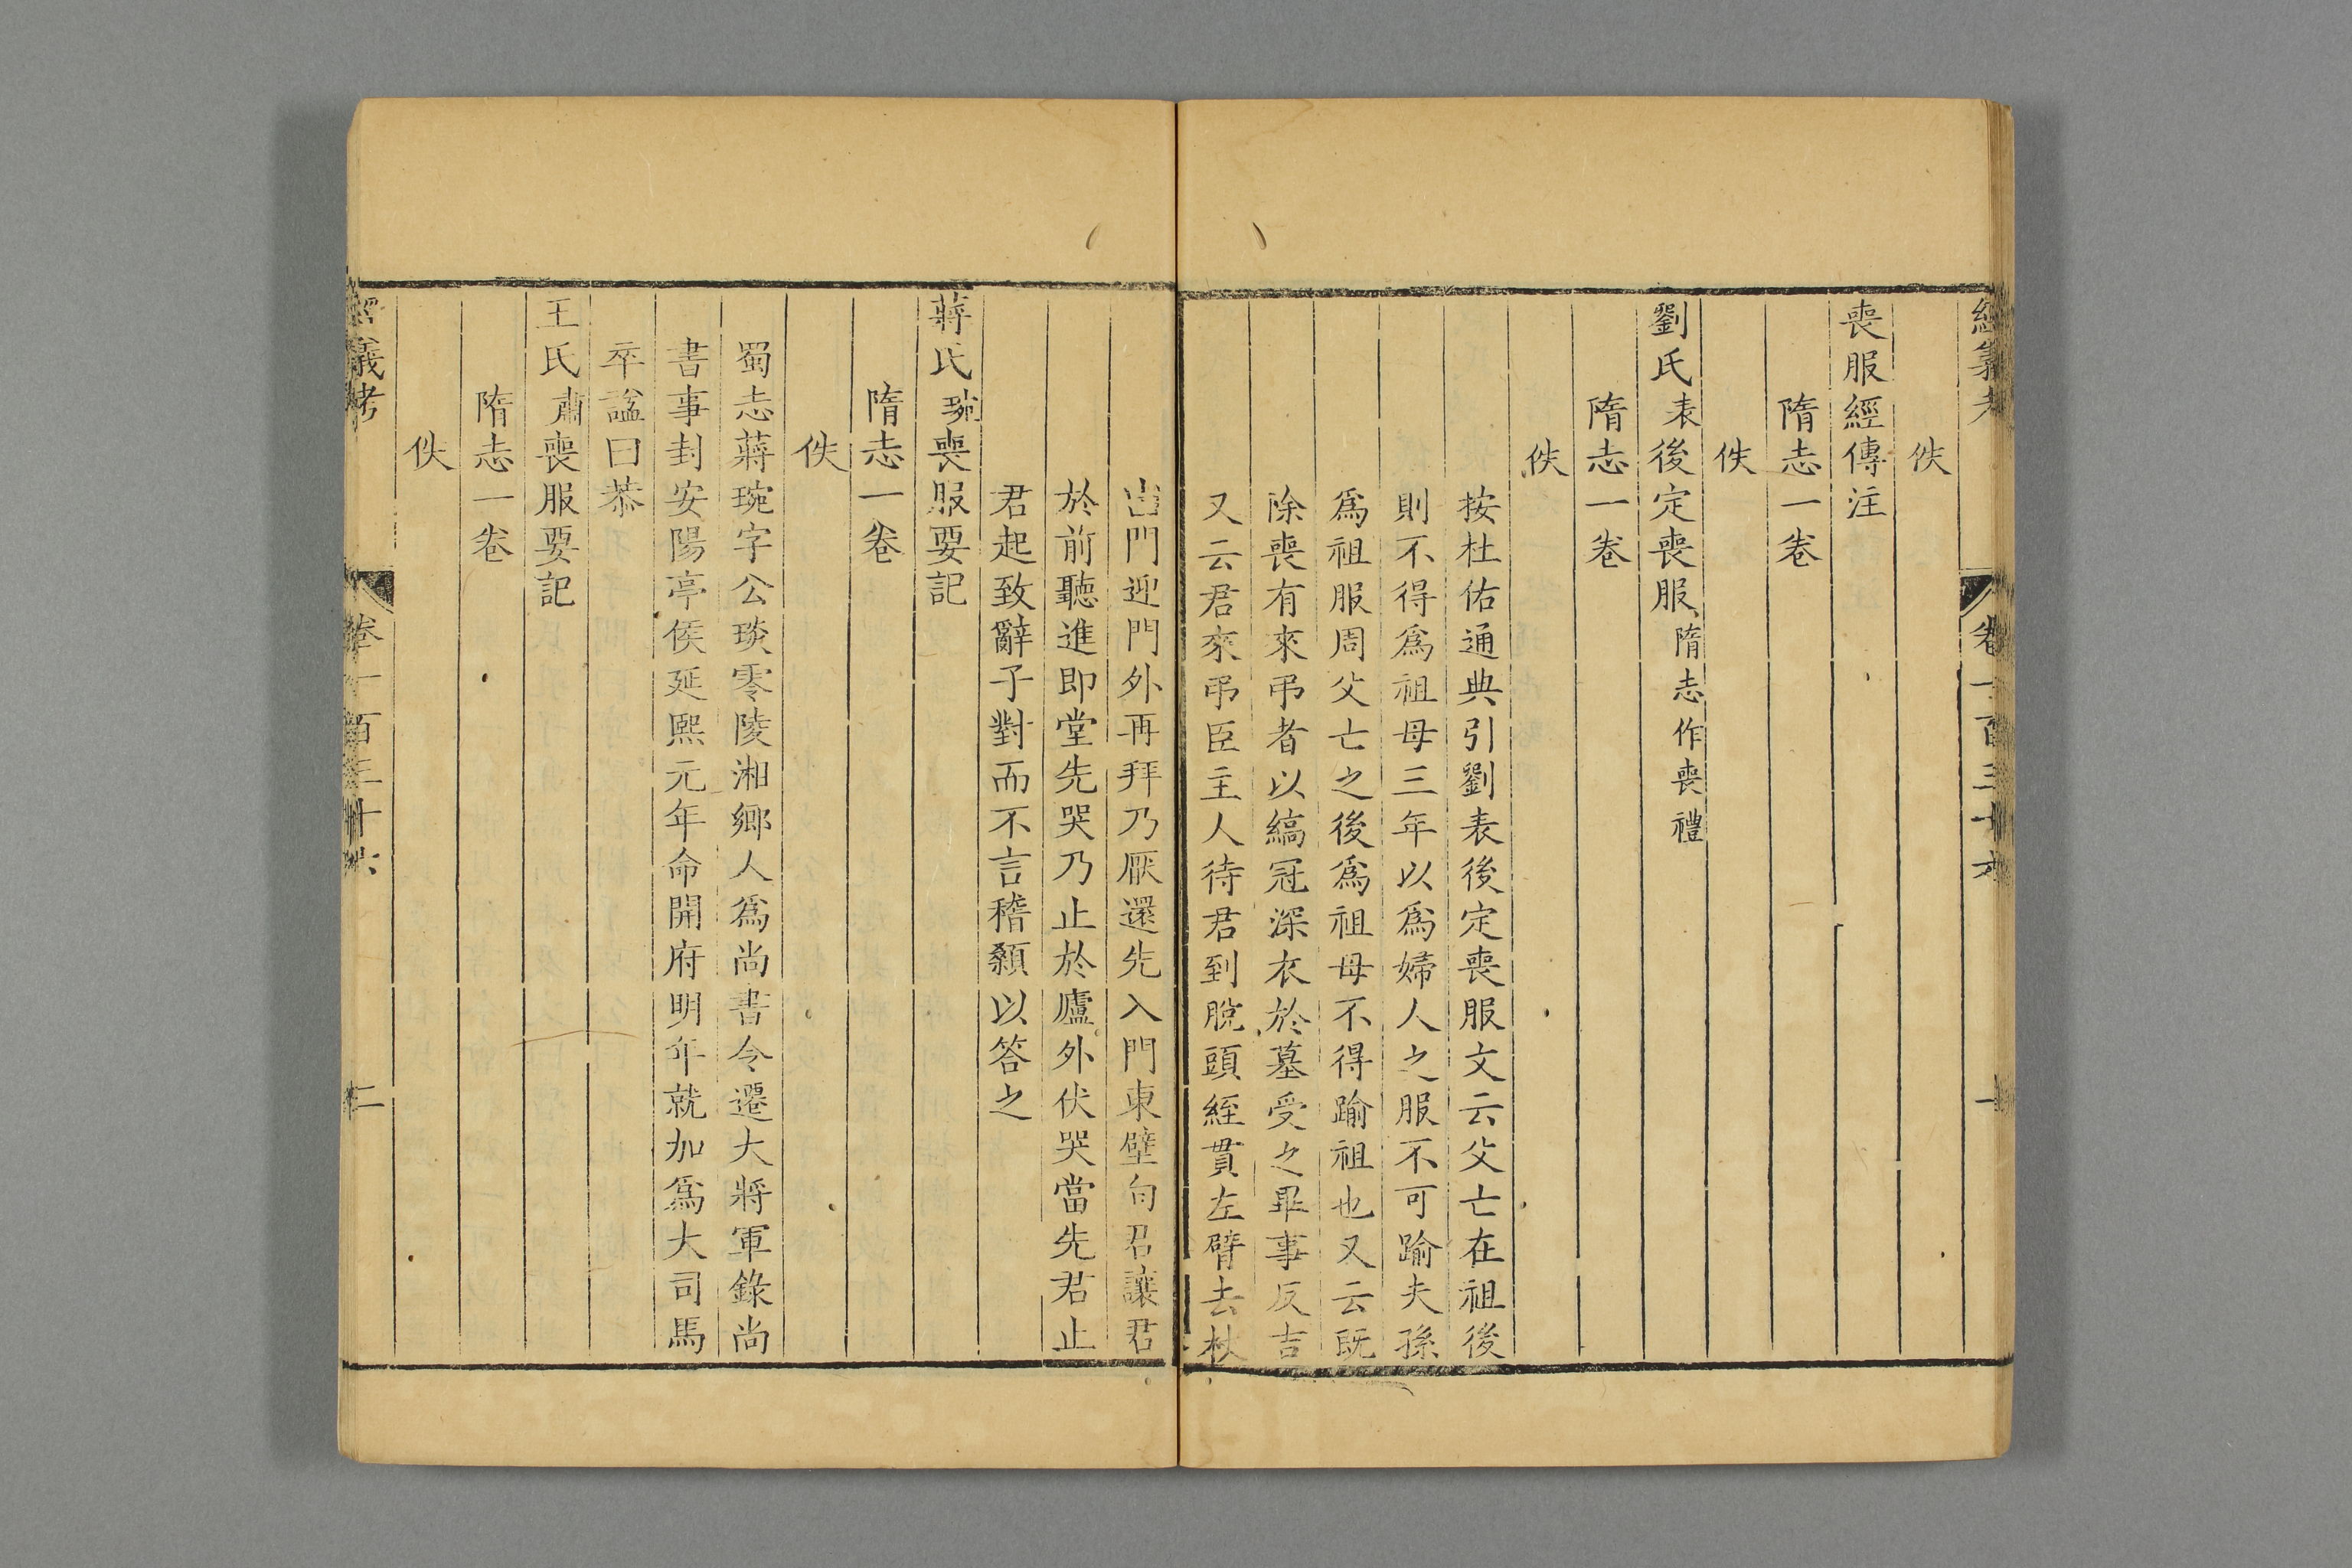 經義考 卷一百三十六 一
佚
喪服經傳注
隋志一卷
佚
劉氏表後定喪服隋志作喪禮
隋志一卷
佚
按杜佑通典引劉表後定喪服文云父亡在祖後
則不得爲祖母三年以爲婦人之服不可踰夫孫
爲祖服周父亡之後爲祖母不得踰祖也又云既
除喪有來弔者以縞冠深衣於墓受之畢事反吉
又云君來弔臣主人待君到脫頭絰貫左臂去杖
出門迎門外再拜乃厭還先入門東壁向君讓君
於前聽進即堂先哭乃止於廬外伏哭當先君止
君起致辭子對而不言稽顙以答之
蔣氏琬喪服要記
隋志一卷
佚
蜀志蔣琬字公琰零陵湘鄉人爲尚書令遷大將軍錄尚
書事封安陽亭侯延熙元年命開府明年就加爲大司馬
卒諡曰恭
王氏肅喪服要記
隋志一卷
佚
經義考 卷一百三十六 二